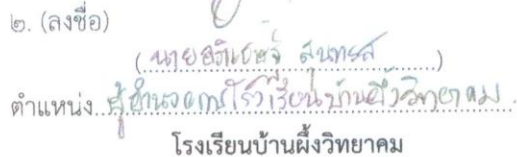 ๒. (ลงชื่อ)
(นายอภิเชษฐ์ สุนทรส)
ตำแหน่ง ผู้อำนวยการโรงเรียนบ้านผึ้งวิทยาคม
โรงเรียนบ้านผึ้งวิทยาคม